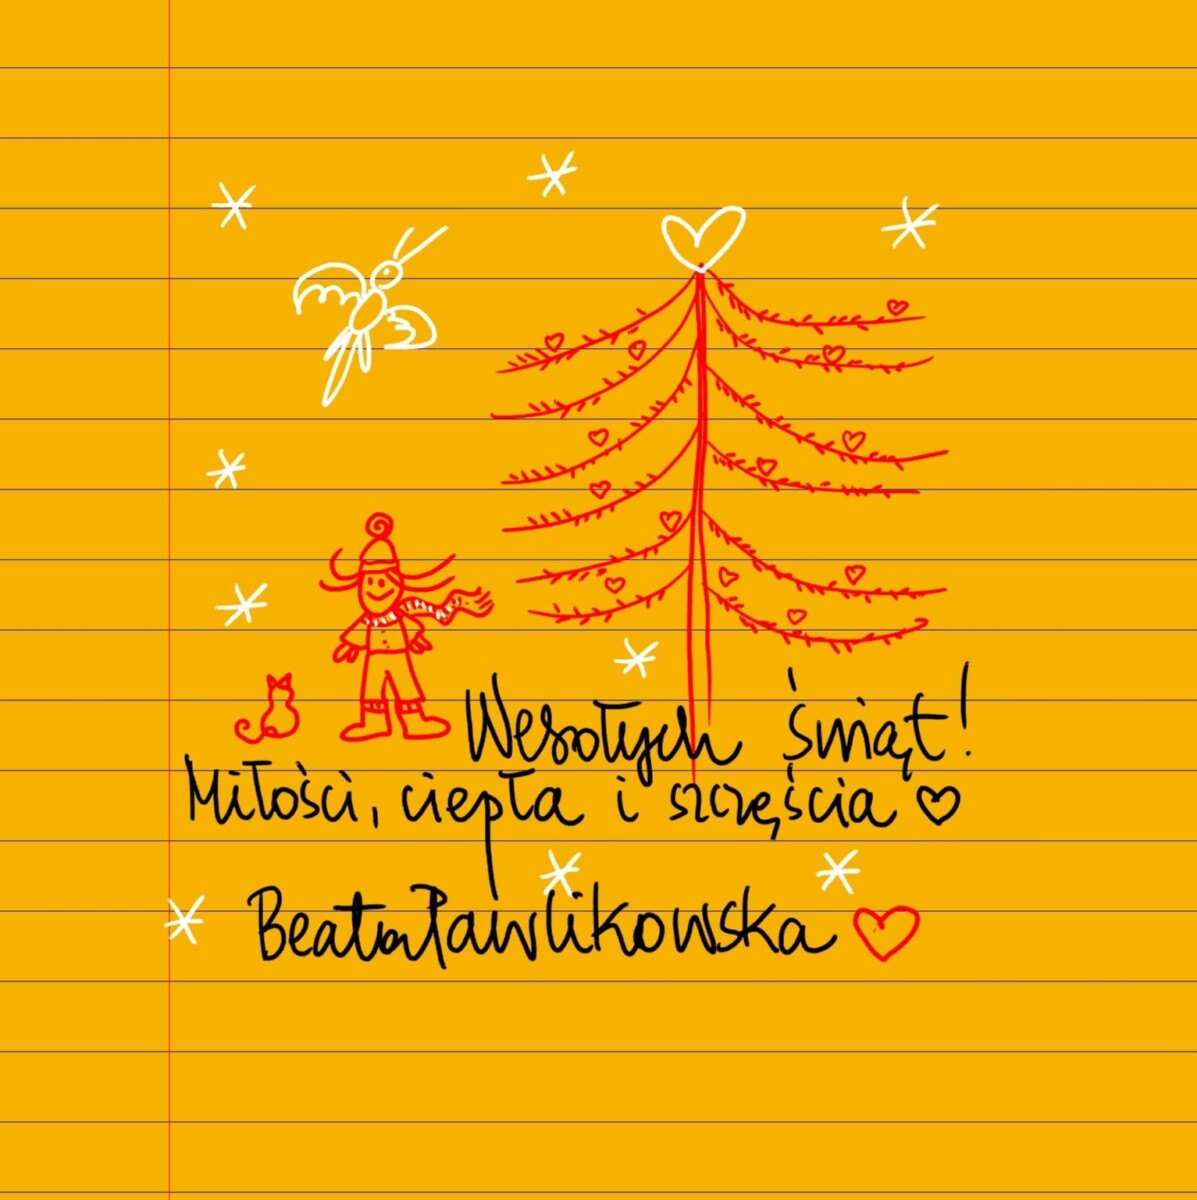 Wesołych świąt!
Miłości, ciepła i szczęścia ♡
Beata Pawlikowska ♡